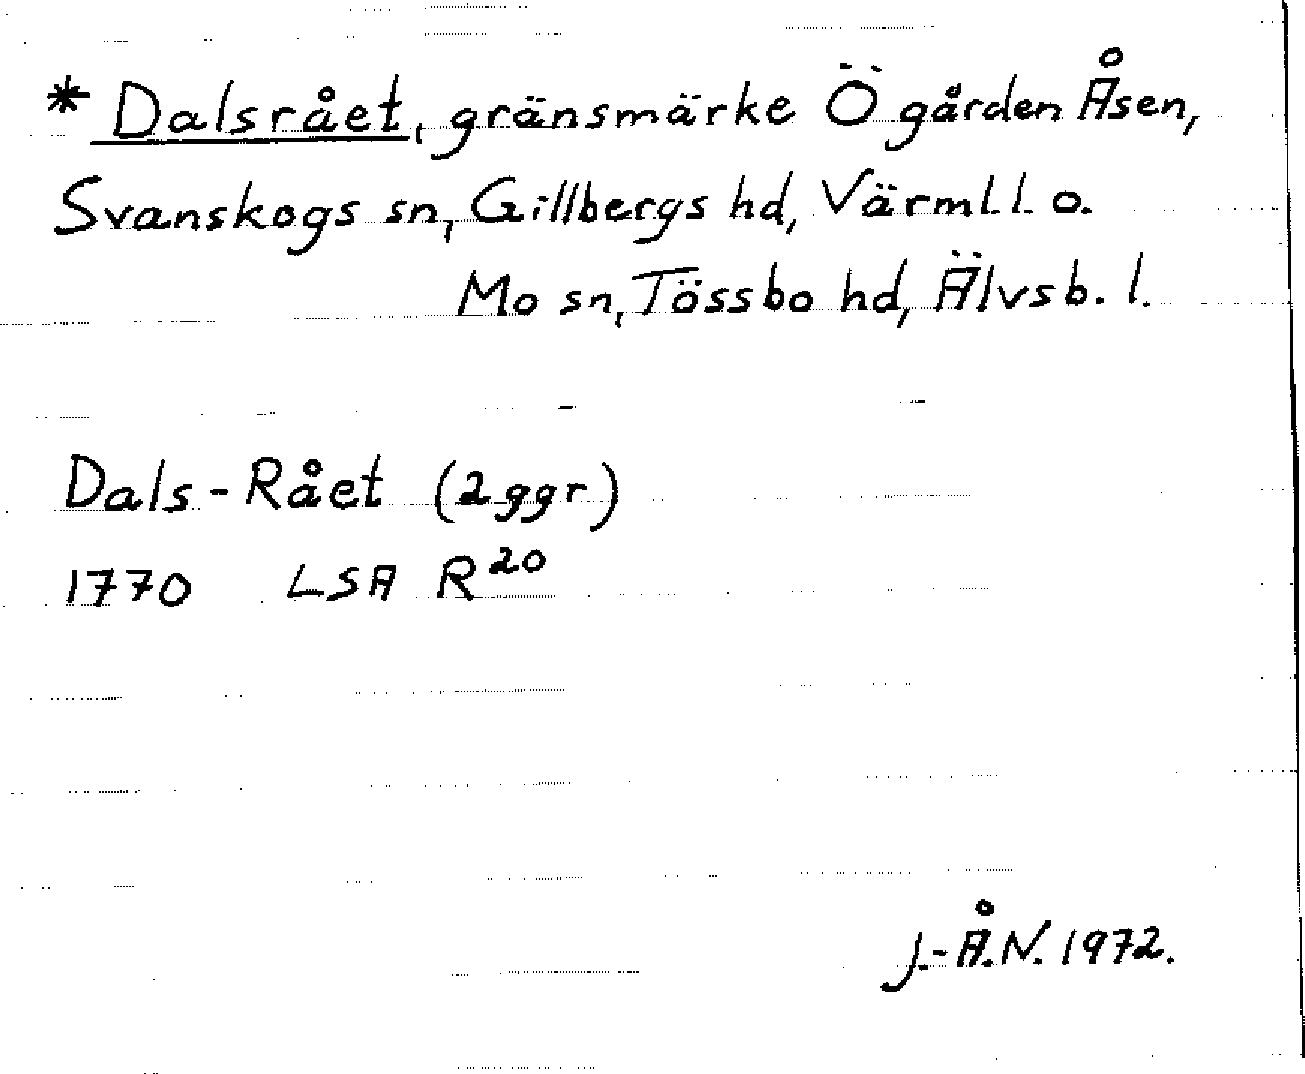 * Dalsrået, gränsmärke Ö gården Åsen,
Svanskogs sn, Gillbergs hd, Värml. l. o.
Mo sn, Tössbo hd, Älvsb. l.
Dals-Rået (2 ggr)
1770 LSA R 20
J.-Å.N. 1972.